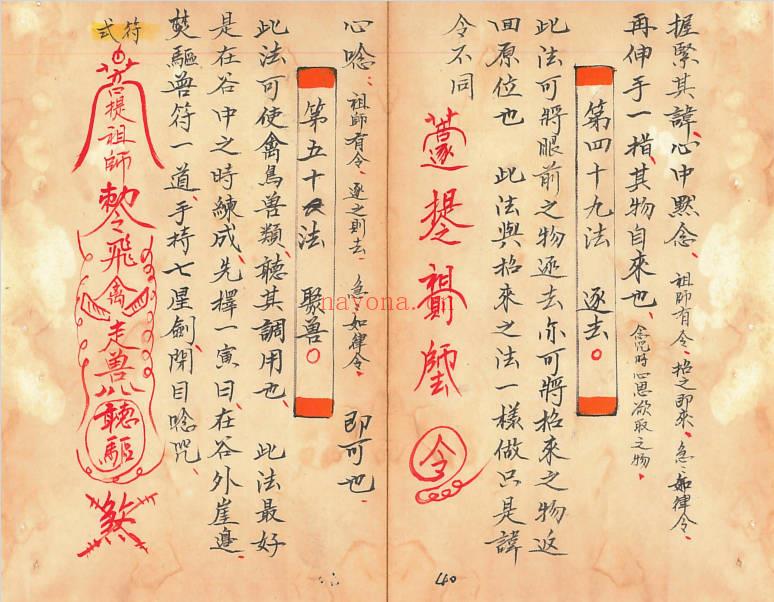 握緊其諱、心中默念、祖師有令、招之即來、急々如律令、
再伸手一指、其物自來也、念咒時心思欲取之物、
第四十九法 逐去○
此法可將眼前之物逐去亦可將招來之物返
回原位也 此法與招來之法一樣做只是諱
令不同
提祖師
令
40
心唸、祖師有令、逐之則去、急々如律令、即可也、
第五十法 聚兽○
此法可使禽鳥兽類、聽其調用也、此法最好
是在谷中之時練成、先擇一寅日、在谷外崖邊、
焚驅兽符一道、手持七星劍、閉目唸咒、
符式
菩提祖師勅令飛禽走兽聽驅煞
nayona.cn